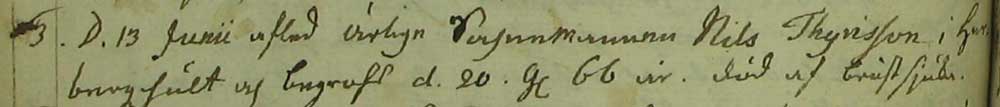 3. D. 13 Junii afled ärlige Dannemannen Nils Thyrisson i Har-
bergshult och begrofs d. 20. Gl. 66 år. död af bröstsjuka.